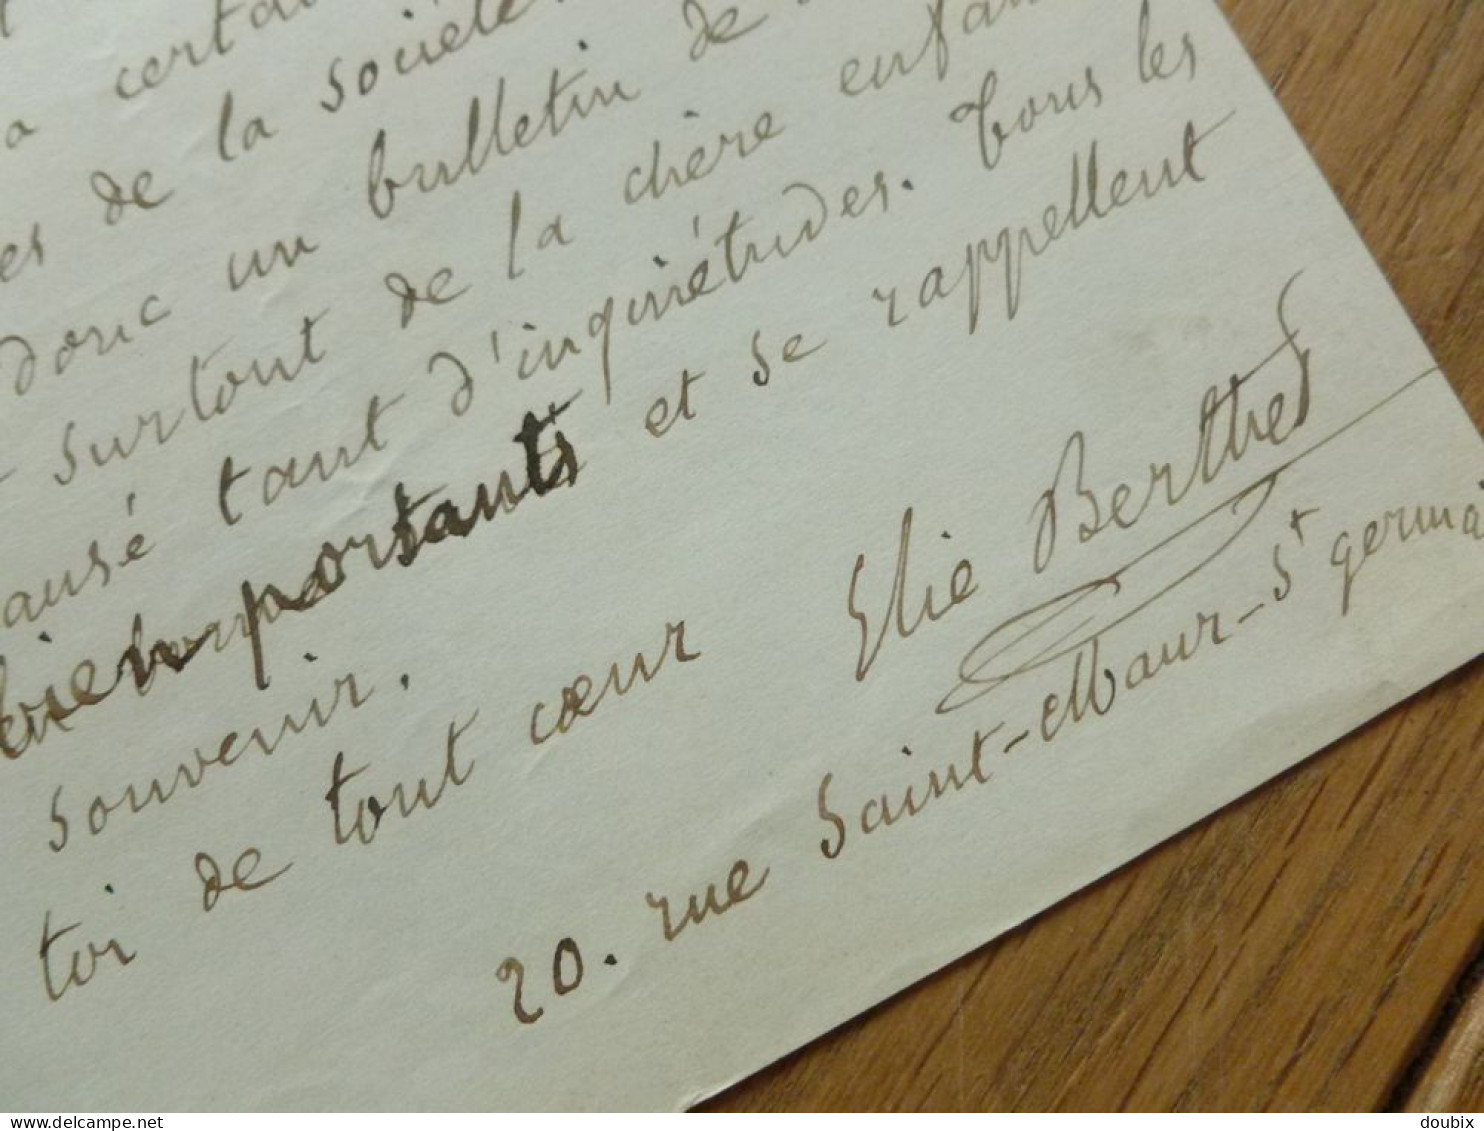 de la société
donc un bulletin de
surtout de la chère enfan
ausé tant d'inquiétudes. Tous les
bien portants et se rappellent
souvenir.
toi de tout cœur
Elie Berthet
20. rue Saint-Maur-St germai
www.delcampe.net
doubix